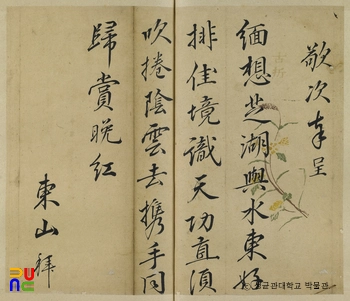 敬次奉呈
緬想芝湖與水東好
排佳境識天功直須
吹捲陰雲去携手同
歸賞晩紅
東山拜
성균관대학교 박물관